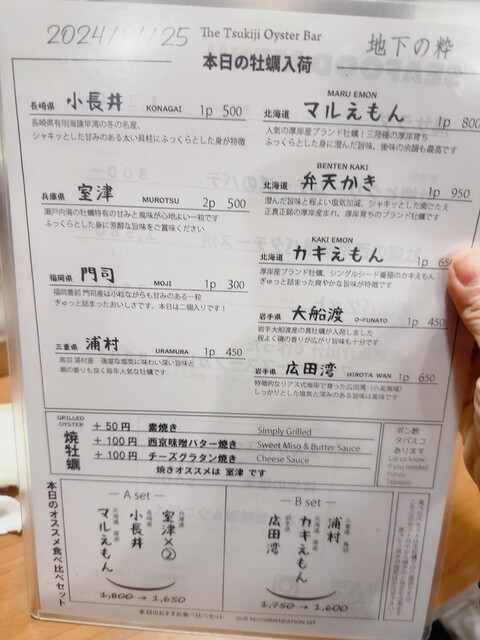 2024/ /25 The Tsukiji Oyster Bar 地下の粋
本日の牡蠣入荷
長崎県 小長井 KONAGAI 1p 500
長崎県有明海諫早湾の冬の名産、
シャキッとした甘みのある太い貝柱にふっくらとした身が特徴
兵庫県 室津 MUROTSU 2p 500
瀬戸内海の牡蠣特有の甘みと風味が心地よい一粒です
ふっくらとした身に芳醇な旨味をご賞味ください
福岡県 門司 MOJI 1p 300
福岡豊前 門司産は小粒ながらも甘みのある一粒
ぎゅっと詰まったおいしさです。本日は二個入りです！
三重県 浦村 URAMURA 1p 450
鳥羽 浦村産 適度な塩気に味わい深い旨味と
潮の香りも良く毎年人気な牡蠣です
MARU EMON
北海道 マルえもん 1p 800
人気の厚岸産ブランド牡蠣！三陸種の厚岸育ち
ふっくらとした身に澄んだ旨味、後味の余韻も最高です
BENTEN KAKI
北海道 弁天かき 1p 950
澄んだ旨味と程よい塩気加減、シャキッとした歯ごたえ
正真正銘の厚岸産まれ、厚岸育ちのブランド牡蠣です
KAKI EMON
北海道 カキえもん 1p 650
厚岸産ブランド牡蠣、シングルシード養殖のカキえもん
ぎゅっと詰まった爽やかな旨味が特徴です
岩手県 大船渡 O-FUNATO 1p 450
岩手大船渡産の真牡蠣が入荷しました
程よく磯の香りが広がり旨味も十分です
岩手県 広田湾 HIROTA WAN 1p 650
特徴的なリアス式海岸で育った広田湾（小友海域）
しっかりとした塩気と深みのある旨味は美味です
GRILLED
OYSTER
焼牡蠣
＋50円 素焼き Simply Grilled
＋100円 西京味噌バター焼き Sweet Miso & Butter Sauce
＋100円 チーズグラタン焼き Cheese Sauce
焼きオススメは 室津 です
ポン酢
タバスコ
あります
Let us know
if you needed
Ponzu
Tabasco
本日のオススメ食べ比べセット
A set
兵庫県 室津×②
長崎県 小長井
北海道 厚岸 マルえもん
1,800→1,650
B set
三重県 鳥羽 浦村
北海道 厚岸 カキえもん
岩手県 広田湾
1,750→1,600
本日のおすすめ食べ比べセット OUR RECOMMENDATION SET